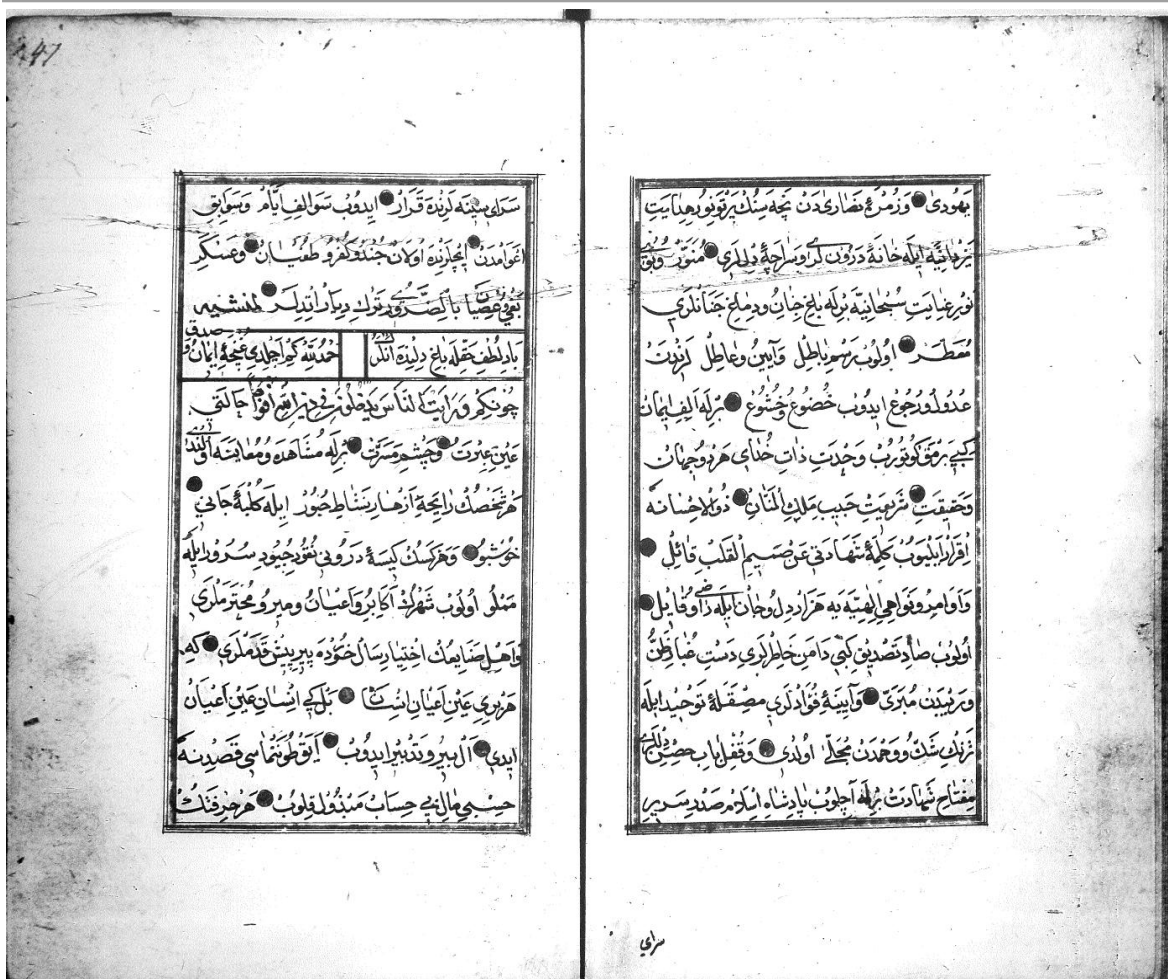 يهودى وزمرۀ نصارى دن نچه سنك پرتو نور هدايت
يزدانيّه ايله خانۀ درونلرى وسراچۀ دللرى منوّر وبوى
نوبر عنايت سبحانيّه برله باغ جان ودماغ جنانلرى
معطّر اولوب رسم باطل وآيين وعاطل لرندن
عدول ورجوع ايدوب خضوع وخشوع برله الف ايمان
كبى برمق كوتوروب وحدت ذات خداى هر دو جهان
وحقيقت شريعت حبيب ملك المنّان ذو الاحسانه
اقرار ايليوب كلمۀ شهادتى عن صميم القلب قائل
واوامر ونواهى الهيّه يه هزار دل وجان ايله راضى وقايل
اولوب صاد تصديق كبى دامن خاطرلرى دست غبار ظنّ
ورتيبدن مبرّى وآيينۀ فؤادلرى مصقلۀ توحيد ايله
ژنك شكّ ووحمدن مجلّى اولدى وقفل باب حصن دللرى
مفتاح شهادت برله آچلوب پادشاه اسلام صدر سرير
سراى
147
سراى سينه لرنده قرار ايدوب سوالف ايّام وسوابق
اعوامدن ايچلرنده اولان جند وكفر وطغيان وعسكر
بغى وعصيان بالضرورى ترك ديار ايتديلر لمنشيه
باد لطف حقله باغ دلنده انلرك
حمد لله كم آچلدى غنچۀ ايمان وصدق
چونكم ورايت الناس يدخلون فى دين الله افواجا حالتى
عين عبرت وچشم مسرّت برله مشاهده ومعاينه اولندى
هر شخصك رايحۀ ازهار نشاط حبور ايله كلبۀ جانى
خوشبو وهر كسك كيسۀ درونى نقود جيود سرور ايله
مملو اولوب شهرك اكابر واعيان ومير ومحترملرى
واهل صنايعك اختيار سال خورده پير پيش قدملرى كه
هر برى عين اعيان انسان بلكى انسان عين اعيان
ايدى آل بير وتدبير ايدوب آيق طونتماسى قصدنه
حسبى مال بى حساب مبذول قلوب هر حرفتك